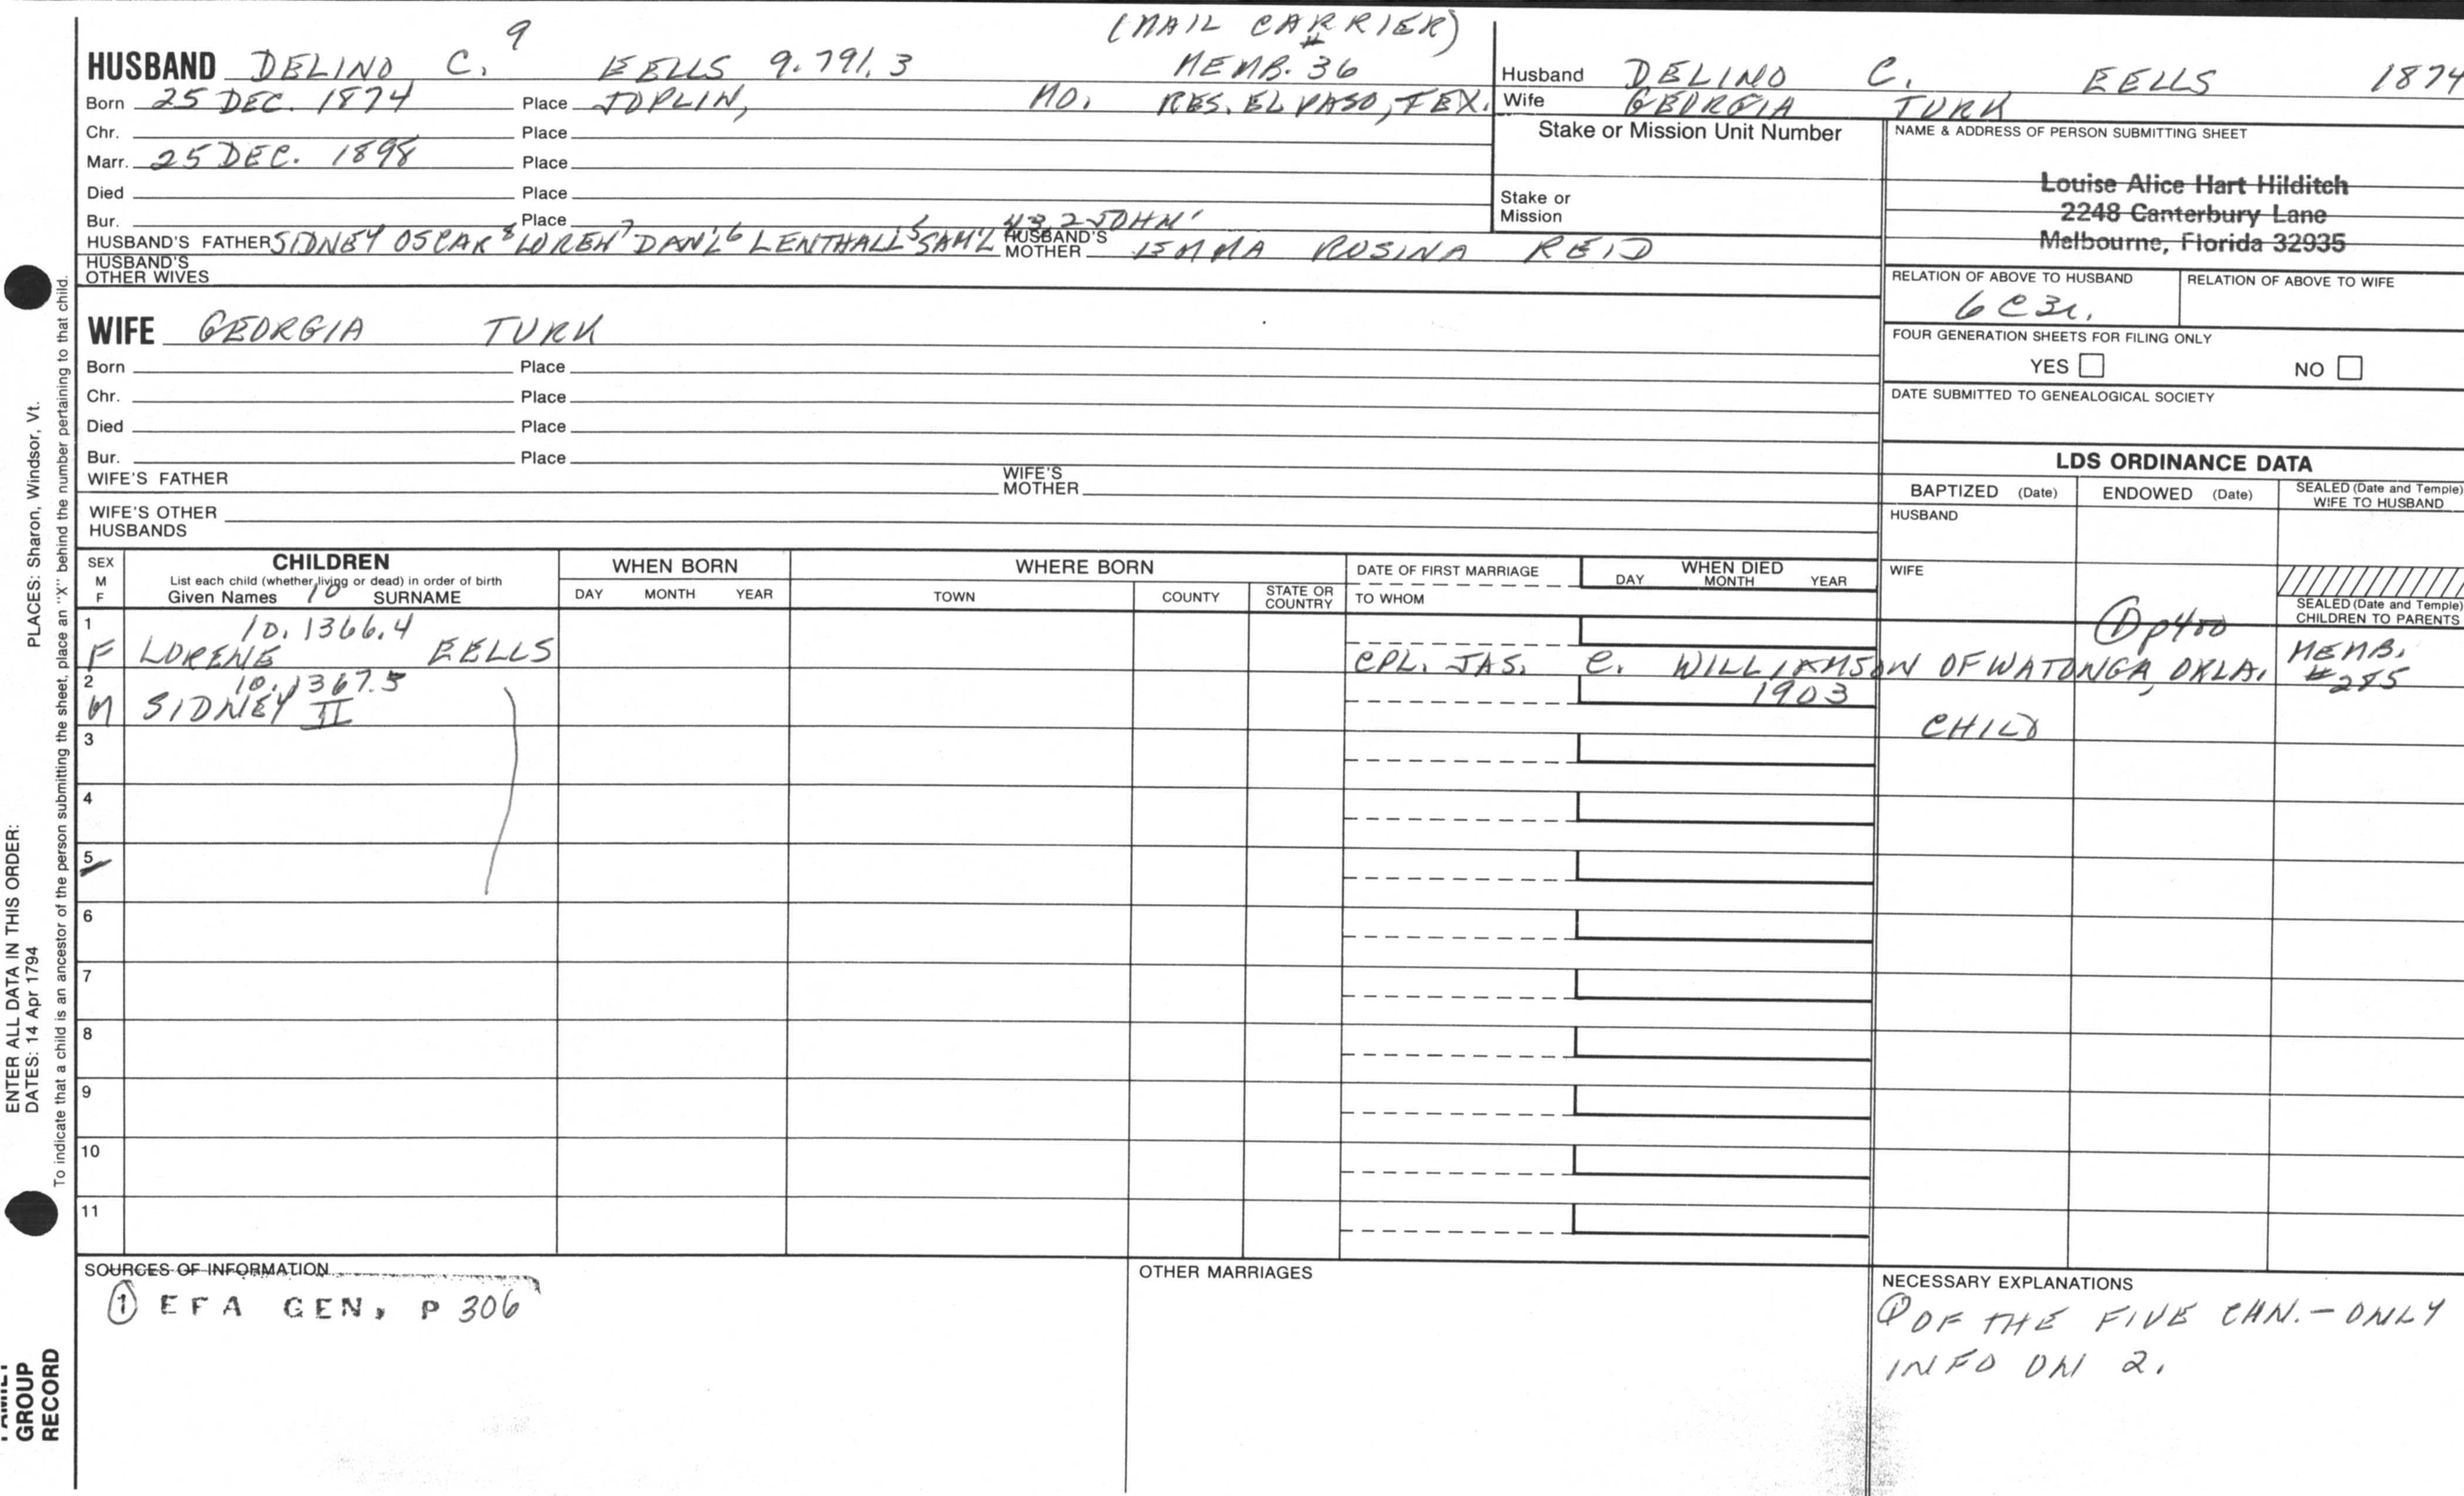 9 (MAIL CARRIER)
HUSBAND DELINO C. EELLS 9.791.3 MEMB. # 36
Born 25 DEC. 1874 Place JOPLIN, MO. RES. EL PASO, TEX.
Chr. Place
Marr. 25 DEC. 1898 Place
Died Place
Bur. Place
HUSBAND'S FATHER SIDNEY OSCAR 8 LOREN 7 DAN'L 6 LENTHALL 5 SAM'L 4 3 2 JOHN 1 HUSBAND'S MOTHER EMMA ROSINA REID
HUSBAND'S OTHER WIVES
Husband DELINO C. EELLS 1874
Wife GEORGIA TURK
Stake or Mission Unit Number
Stake or Mission
NAME & ADDRESS OF PERSON SUBMITTING SHEET
Louise Alice Hart Hilditch
2248 Canterbury Lane
Melbourne, Florida 32935
RELATION OF ABOVE TO HUSBAND RELATION OF ABOVE TO WIFE
6C3r.
FOUR GENERATION SHEETS FOR FILING ONLY
YES NO
DATE SUBMITTED TO GENEALOGICAL SOCIETY
WIFE GEORGIA TURK
Born Place
Chr. Place
Died Place
Bur. Place
WIFE'S FATHER WIFE'S MOTHER
WIFE'S OTHER HUSBANDS
LDS ORDINANCE DATA
BAPTIZED (Date) ENDOWED (Date) SEALED (Date and Temple) WIFE TO HUSBAND
HUSBAND
WIFE
SEALED (Date and Temple) CHILDREN TO PARENTS
SEX M F CHILDREN WHEN BORN WHERE BORN DATE OF FIRST MARRIAGE WHEN DIED
List each child (whether living or dead) in order of birth
Given Names 10 SURNAME DAY MONTH YEAR TOWN COUNTY STATE OR COUNTRY TO WHOM DAY MONTH YEAR
1 10.1366.4 ① p400
F LORENE EELLS CPL. JAS. C. WILLIAMSON OF WATONGA, OKLA. MEMB. # 285
2 10.1367.5 1903
M SIDNEY II CHILD
3
4
5
6
7
8
9
10
11
SOURCES OF INFORMATION
① EFA GEN, P 306
OTHER MARRIAGES
NECESSARY EXPLANATIONS
① OF THE FIVE CHN. - ONLY
INFO ON 2.
ENTER ALL DATA IN THIS ORDER:
DATES: 14 Apr 1794 PLACES: Sharon, Windsor, Vt.
To indicate that a child is an ancestor of the person submitting the sheet, place an "X" behind the number pertaining to that child.
FAMILY
GROUP
RECORD